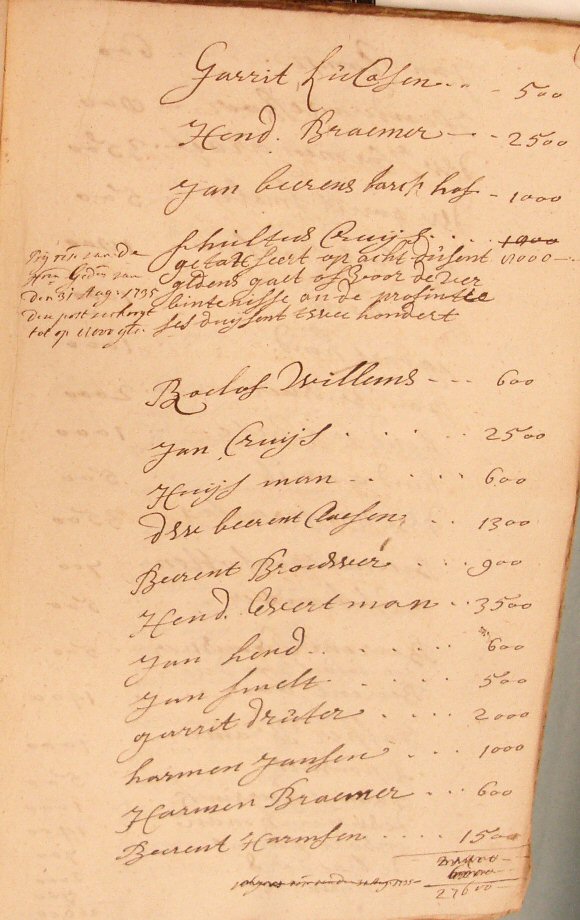 Garrit Lucasen - 500
Hend. Braemer - 2500
Jan beerens karck hof - 1000
schultus Cruijs 1000
getaxseert op acht dusent 11000
gldens gaet of voor de ver
bintenisse an de profintie
ses duijsent twee hondert
van de
Hren Gedep. van
Den 31 Aug. 1735
Den post verhoogt
tot op 11000 gls.
Roelof Willems - 600
Jan Cruijs 2500
Huijs man 600
beerent Claesen 1300
Beerent Brouwer 900
Hend. Evert man 3500
Jan hend. 600
Jan smelt 500
garrit druter 2000
harmen Jansen 1000
Harmen Braemer 600
Beerent Harmsen 1500
27600